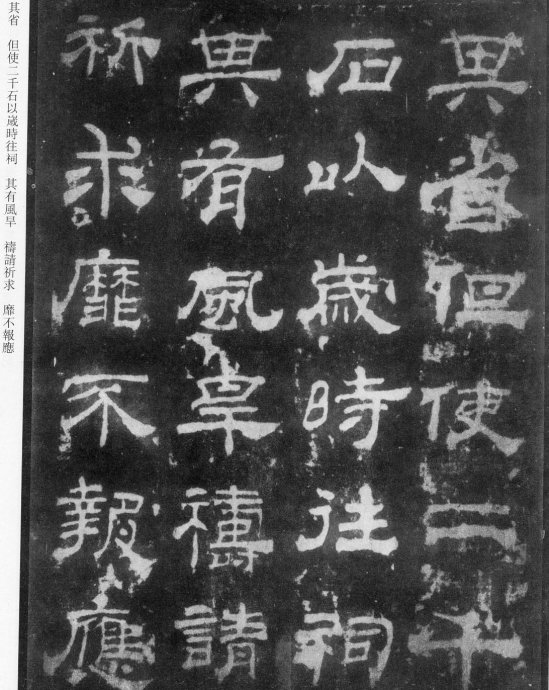 其省但使二千
石以歲時往祠
其有風旱禱請
祈求靡不報應
其省 但使二千石以歲時往祠 其有風旱 禱請祈求 靡不報應